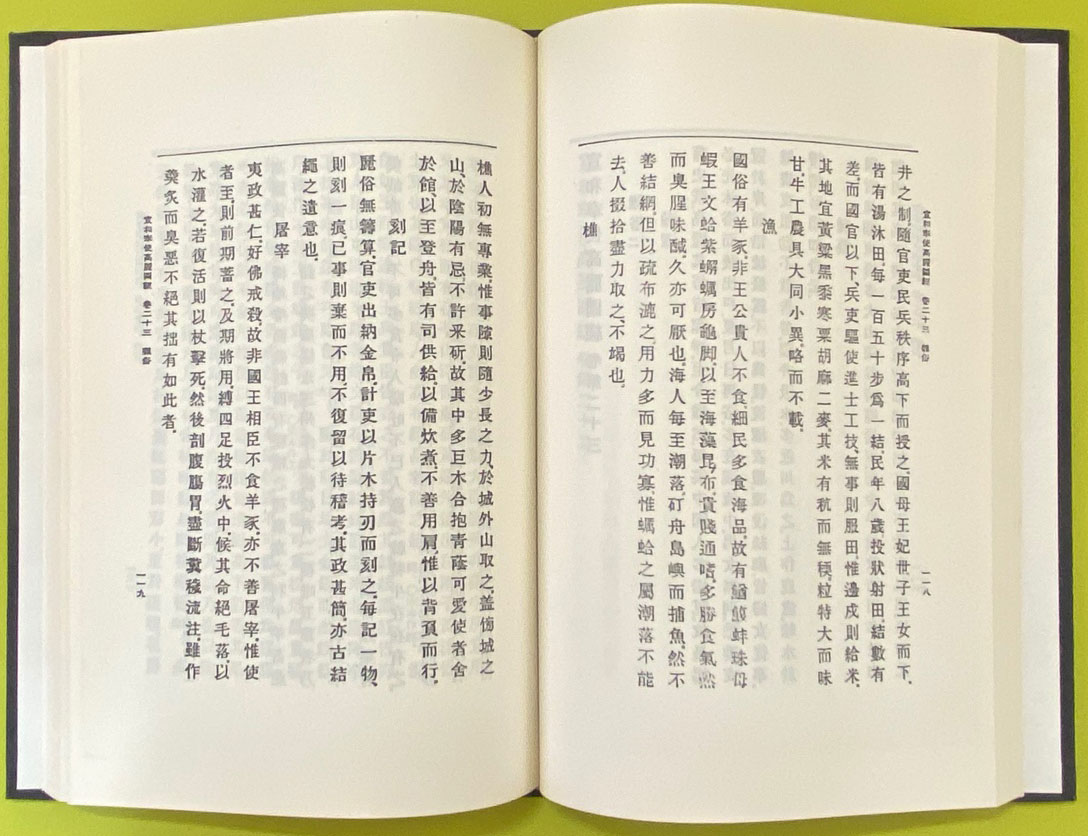 宣和奉使高麗圖經 卷二十三 雜俗
一一八
井之制隨官吏民兵秩序高下而授之國母王妃世子王女而下
皆有湯沐田每一百五十步爲一結民年八歲投狀射田結數有
差而國官以下兵吏驅使進士工技無事則服田惟邊戍則給米
其地宜黃粱黑黍寒粟胡麻二麥其米有秔而無稬粒特大而味
甘牛工農具大同小異略而不載
漁
國俗有羊豕非王公貴人不食細民多食海品故有鰌鰒蚌珠母
蝦王文蛤紫蟹蠣房龜脚以至海藻昆布貴賤通嗜多勝食氣然
而臭腥味醎久亦可厭也海人每至潮落矴舟島嶼而捕魚然不
善結網但以疏布漉之用力多而見功寡惟蠣蛤之屬潮落不能
去人掇拾盡力取之不竭也
樵
樵人初無專業惟事隙則隨少長之力於城外山取之蓋傍城之
山於陰陽有忌不許采斫故其中多巨木合抱青蔭可愛使者舍
於館以至登舟皆有司供給以備炊煮不善用肩惟以背負而行
刻記
麗俗無籌算官吏出納金帛計吏以片木持刃而刻之每記一物
則刻一痕已事則棄而不用不復留以待稽考其政甚簡亦古結
繩之遺意也
屠宰
夷政甚仁好佛戒殺故非國王相臣不食羊豕亦不善屠宰惟使
者至則前期蓄之及期將用縛四足投烈火中候其命絕毛落以
水灌之若復活則以杖擊死然後剖腹腸胃盡斷糞穢流注雖作
羹胾而臭惡不絕其拙有如此者
宣和奉使高麗圖經 卷二十三 雜俗
一一九